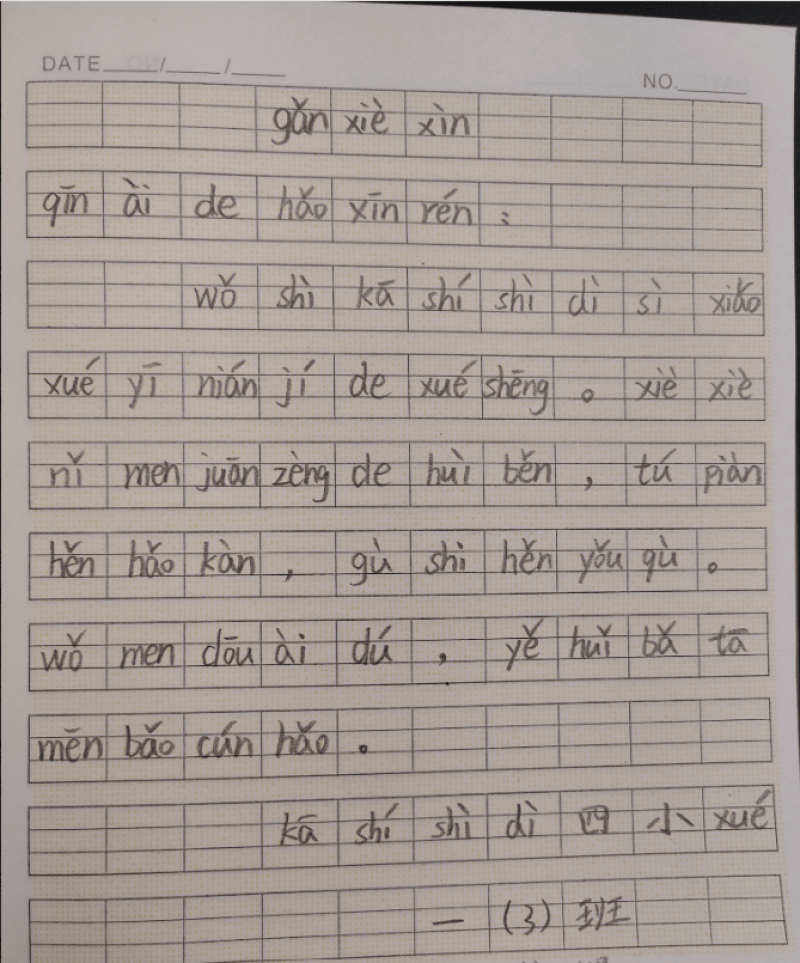 DATE / /
NO.
gǎn xiè xìn
qīn ài de hǎo xīn rén：
wǒ shì kā shí shì dì sì xiǎo
xué yī nián jí de xué shēng 。 xiè xiè
nǐ men juān zèng de huì běn ， tú piàn
hěn hǎo kàn ， gù shi hěn yǒu qù 。
wǒ men dōu ài dú ， yě huǐ bǎ tā
mēn bǎo cún hǎo 。
kā shí shì dì 四 小 xué
一 (3) 班